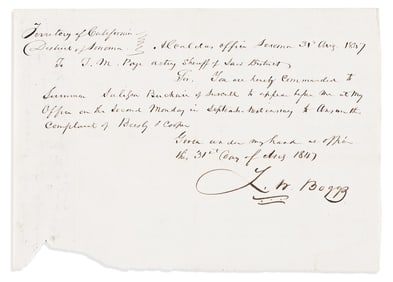 Territory of California
District of Sonoma Alcaldes office Sonoma 31st Aug. 1847
To J. M. Page acting Sheriff of Said District
Sir. You are hereby Commanded to
Summon to appear before me at my
Office on the Second Monday in September next to Answer the
Complaint of & Cooper
Given under my hand at office
this 31st Day of Aug 1847
L. W. Boggs